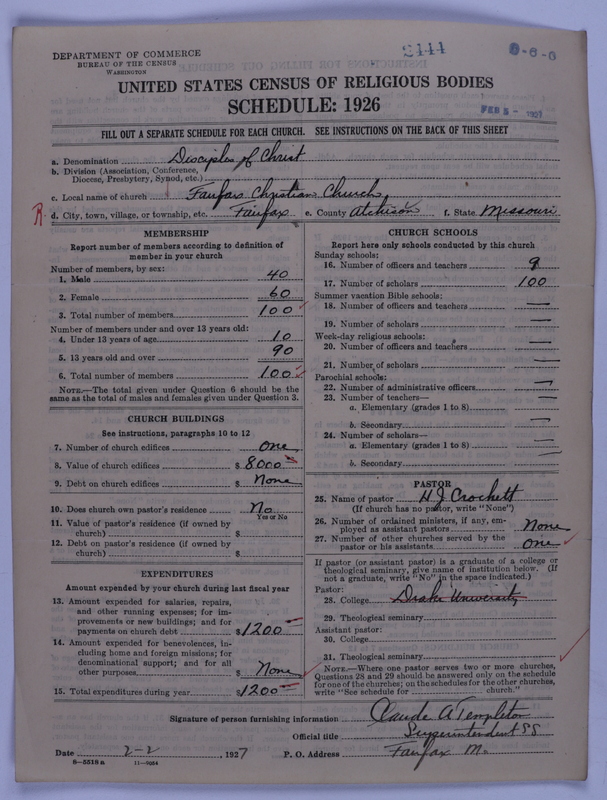 DEPARTMENT OF COMMERCE
BUREAU OF THE CENSUS
WASHINGTON
2111
0-6-6
UNITED STATES CENSUS OF RELIGIOUS BODIES
SCHEDULE: 1926
FEB 5 - 1927
FILL OUT A SEPARATE SCHEDULE FOR EACH CHURCH. SEE INSTRUCTIONS ON THE BACK OF THIS SHEET
a. Denomination Disciples of Christ
b. Division (Association, Conference,
Diocese, Presbytery, Synod, etc.)
c. Local name of church Fairfax Christian Church
R d. City, town, village, or township, etc. Fairfax e. County Atchison f. State Missouri
MEMBERSHIP
Report number of members according to definition of
member in your church
Number of members, by sex:
1. Male 40
2. Female 60
3. Total number of members 100
Number of members under and over 13 years old:
4. Under 13 years of age 10
5. 13 years old and over 90
6. Total number of members 100
NOTE.—The total given under Question 6 should be
same as the total of males and females given under Question 3.
CHURCH BUILDINGS
See instructions, paragraphs 10 to 12
7. Number of church edifices one
8. Value of church edifices $ 8000
9. Debt on church edifices $ None
10. Does church own pastor's residence No
Yes or No
11. Value of pastor's residence (if owned by
church) $
12. Debt on pastor's residence (if owned by
church) $
EXPENDITURES
Amount expended by your church during last fiscal year
13. Amount expended for salaries, repairs,
and other running expenses; for im-
provements or new buildings; and for
payments on church debt $ 1200
14. Amount expended for benevolences, in-
cluding home and foreign missions; for
denominational support; and for all
other purposes $ None
15. Total expenditures during year $ 1200
CHURCH SCHOOLS
Report here only schools conducted by this church
Sunday schools:
16. Number of officers and teachers 9
17. Number of scholars 100
Summer vacation Bible schools:
18. Number of officers and teachers —
19. Number of scholars —
Week-day religious schools:
20. Number of officers and teachers —
21. Number of scholars —
Parochial schools:
22. Number of administrative officers —
23. Number of teachers—
a. Elementary (grades 1 to 8) —
b. Secondary —
24. Number of scholars—
a. Elementary (grades 1 to 8) —
b. Secondary —
PASTOR
25. Name of pastor H J Crockett
(If church has no pastor, write "None")
26. Number of ordained ministers, if any, em-
ployed as assistant pastors None
27. Number of other churches served by the
pastor or his assistants one
If pastor (or assistant pastor) is a graduate of a college or
theological seminary, give name of institution below. (If
not a graduate, write "No" in the space indicated.)
Pastor:
28. College Drake University
29. Theological seminary
Assistant pastor:
30. College
31. Theological seminary
NOTE.—Where one pastor serves two or more churches,
Questions 28 and 29 should be answered only on the schedule
for one of the churches; on the schedules for the other churches,
write "See schedule for church."
Signature of person furnishing information Claude A Templeton
Official title Superintendent SS
Date 2-2, 1927 P. O. Address Fairfax Mo.
8-5518 a 11-9084